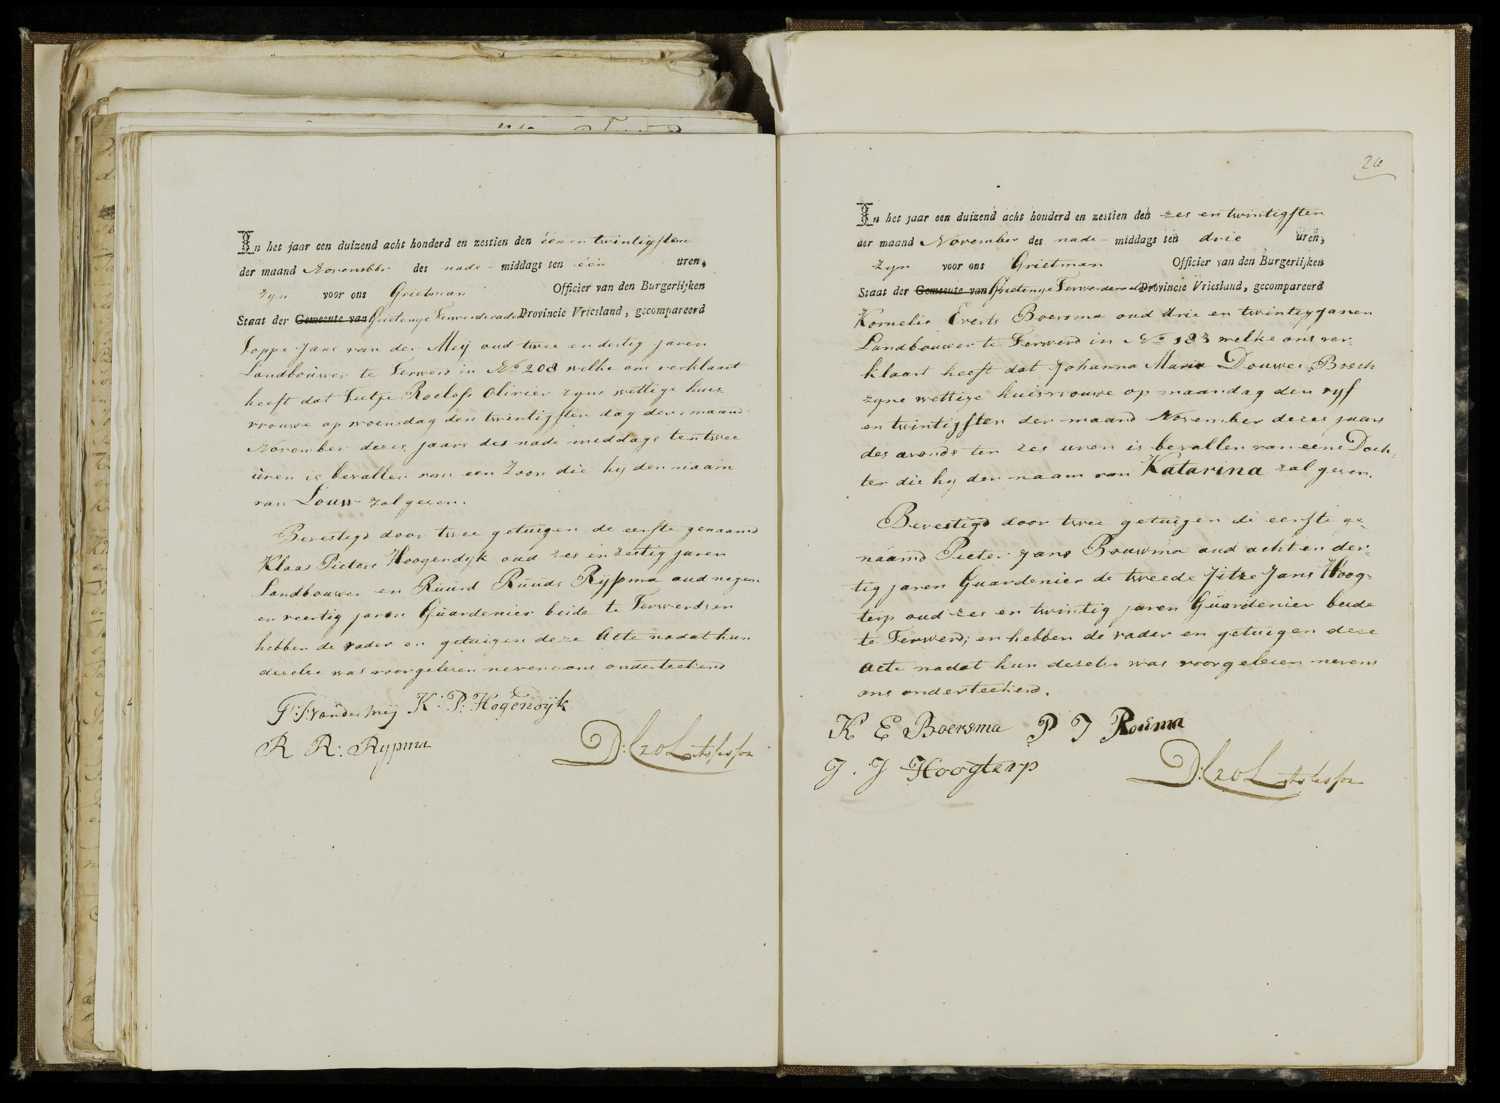 In het jaar een duizend acht honderd en zestien den één en twintigsten
der maand November des nade- middags ten één uren,
zyn voor ons Grietman Officier van den Burgerlijken
Staat der Gemeente van Grietenye Ferwerderadeel Provincie Vriesland, gecompareerd
Foppe Jans van der Meij oud twee en dertig jaren
Landbouwer te Ferwerd in No 208 welke ons verklaart
heeft dat Tietje Roelofs Olivier zyne wettige huis
vrouwe op woensdag den twintigsten dag der maand
November dezes jaars des nade middags ten twee
uren is bevallen van een Zoon die hy den naam
van Louw zal geven.
Bevestigd door twee getuigen de eerste genaamd
Klaas Pieters Hoogendyk oud zes en zestig jaren
Landbouwer en Ruurd Ruurds Rypma oud negen
en veertig jaren Guardenier beide te Ferwerd; en
hebben de vader en getuigen deze Acte nadat hun
dezelve was voorgelezen nevens ons onderteekend
F: J: van der meij K: P: Hogendijk
R R: Rypma D: Lzol Assessor
26
In het jaar een duizend acht honderd en zestien den zes en twintigsten
der maand November des nade- middags ten drie uren,
zyn voor ons Grietman Officier van den Burgerlijken
Staat der Gemeente van Grietenye Ferwerderadeel Provincie Vriesland, gecompareerd
Kornelis Everts Boersma oud drie en twintig jaren
Landbouwer te Ferwerd in No 183 welke ons ver
klaart heeft dat Johanna Maria Douwes Bosch
zyne wettige huisvrouwe op maandag den vyf
en twintigsten der maand November dezes jaars
des avonds ten zes uren is bevallen van eene Doch
ter die hy den naam van Katarina zal geven.
Bevestigd door twee getuigen de eerste ge-
naamd Pieter Jans Bouwma oud acht en der
tig jaren Guardenier de tweede Jitze Jans Hoog-
terp oud zes en twintig jaren Guardenier beide
te Ferwerd; en hebben de vader en getuigen deze
Acte nadat hun dezelve was voorgelezen nevens
ons onderteekend.
K E Boersma P J Rouma
J. J Hoogterp D: Lzol Assessor